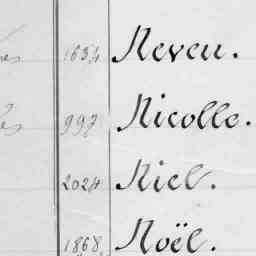 1634 Neveu.
997 Nicolle.
2024 Niel.
1868 Noël.